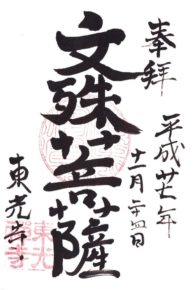 奉拝
平成廿七年
十一月二十四日
文殊菩薩
東光寺
東光
禅寺